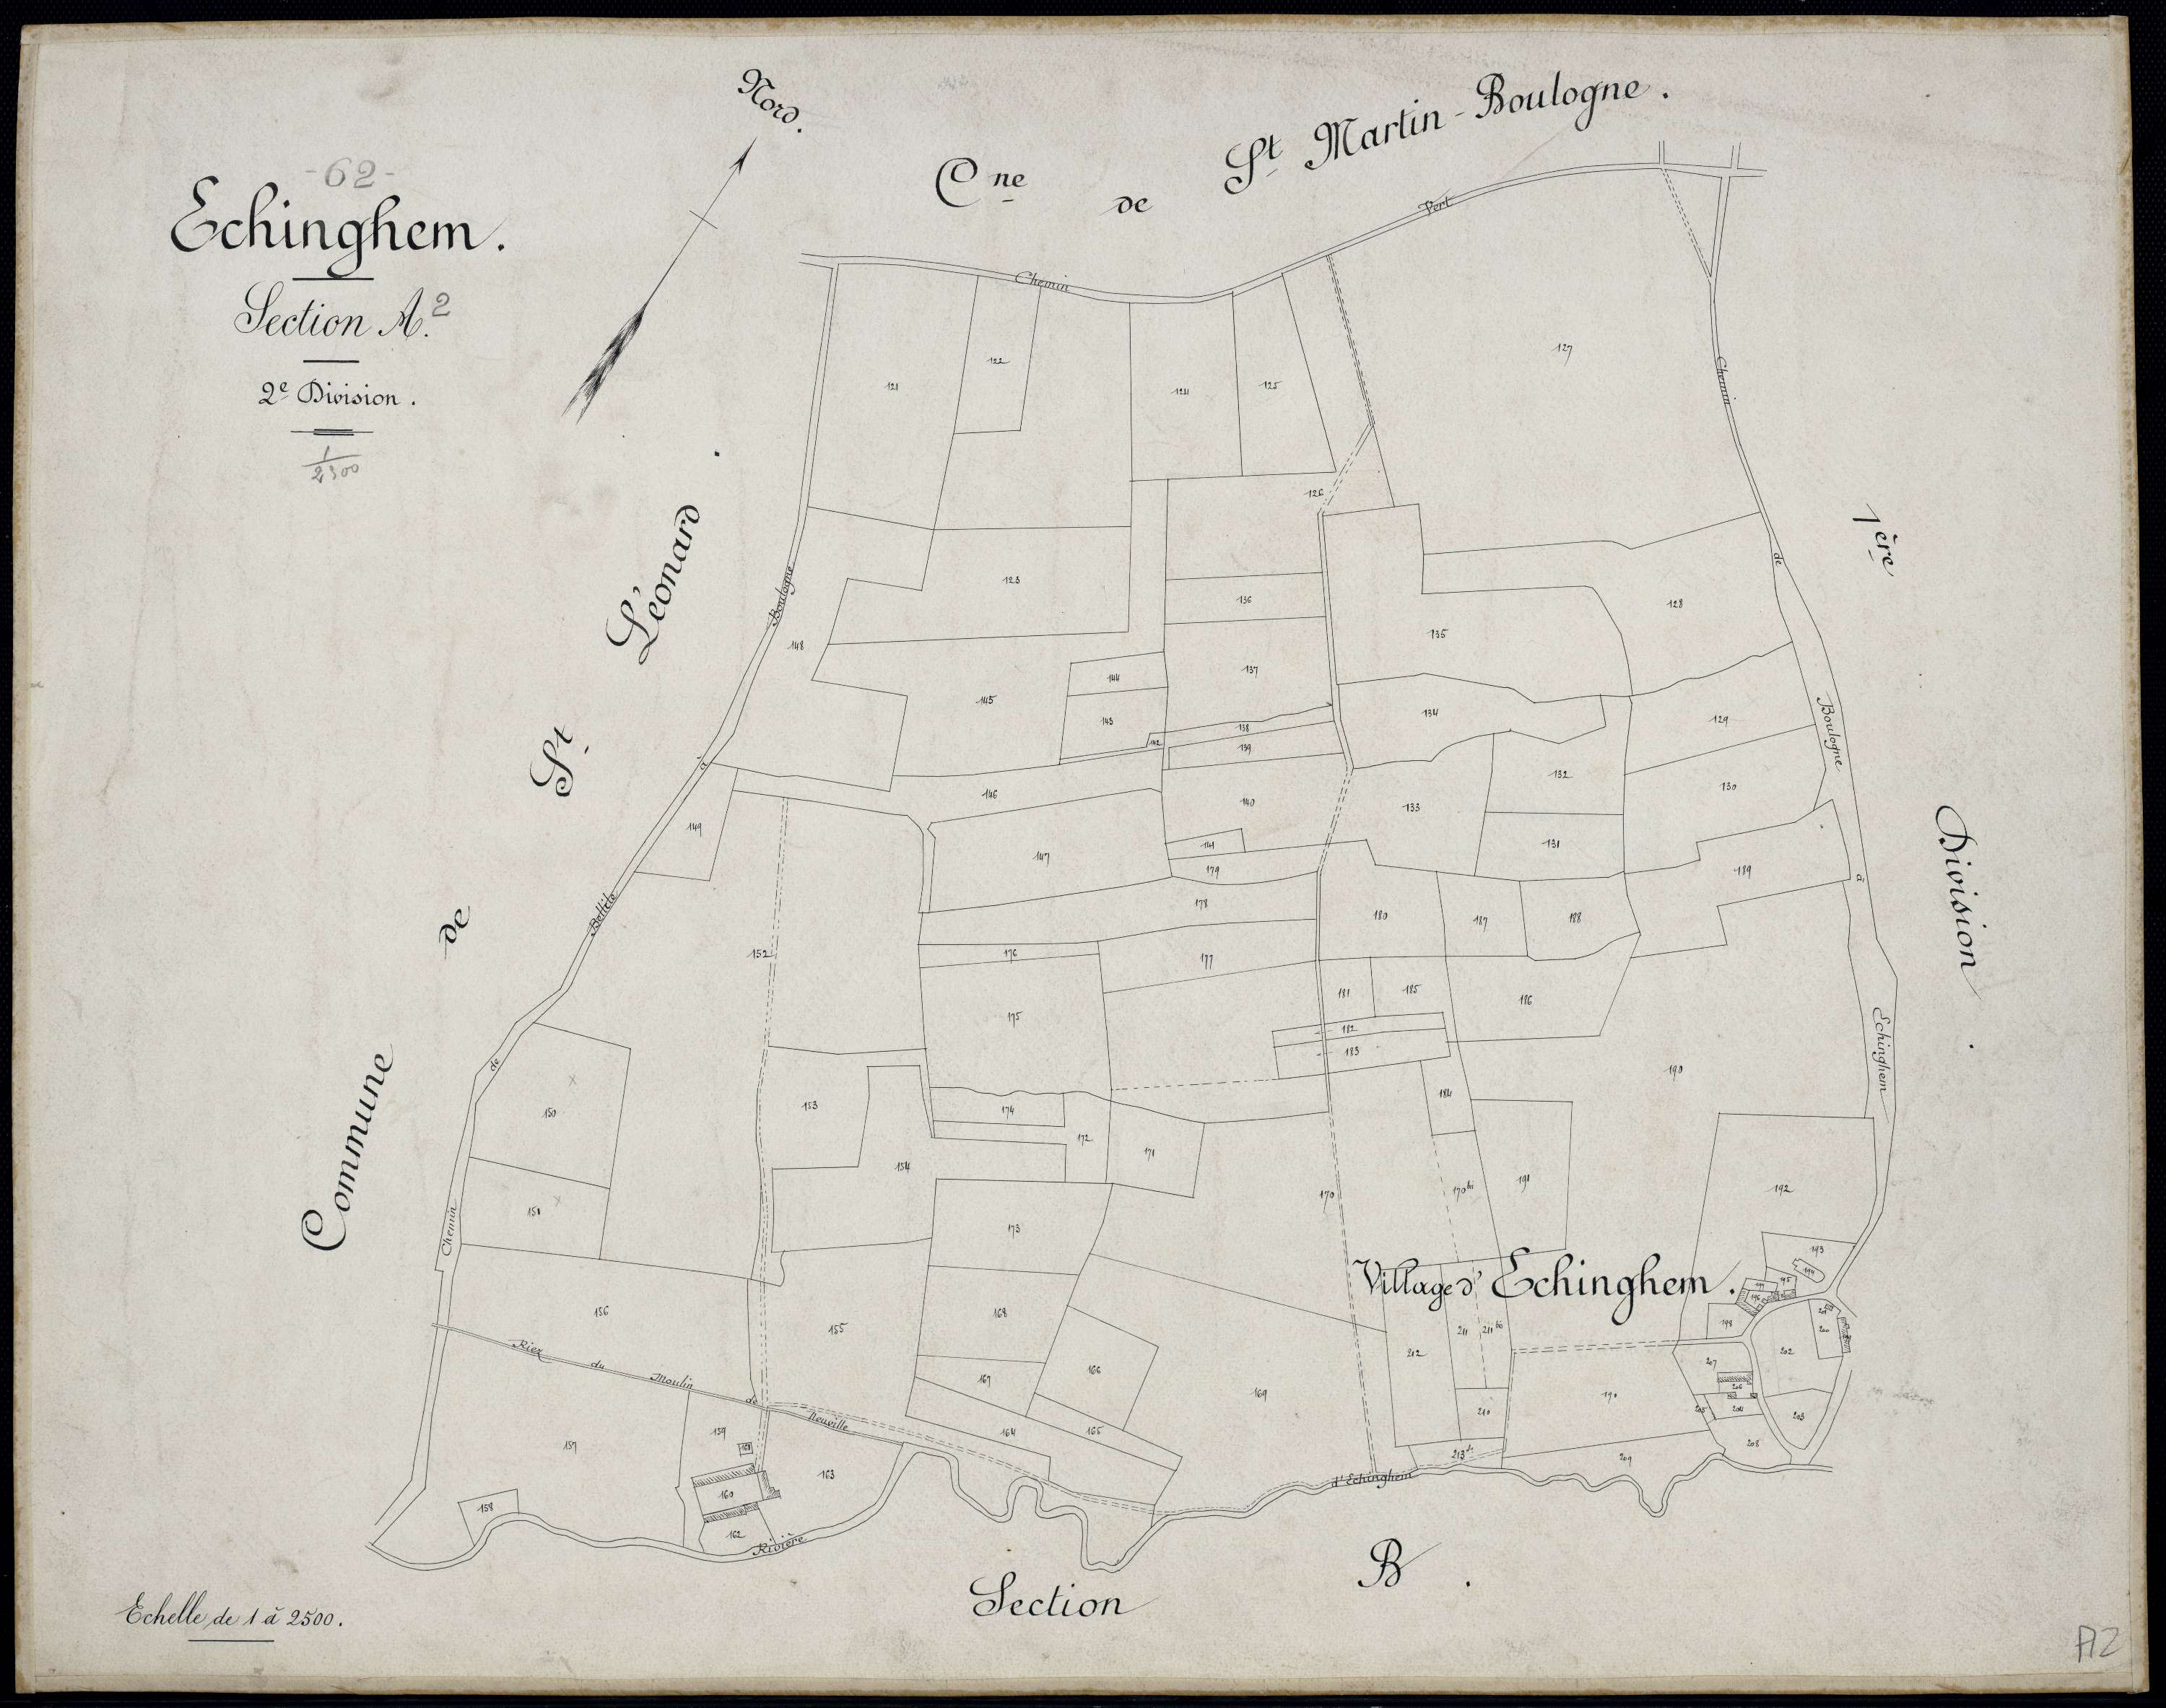 -62-
Echinghem.
Section A.2
2e Division.
1
2500
Nord.
Cne de St Martin-Boulogne.
Commune de St Léonard.
1ère Division.
Chemin Vert
Chemin de Boulogne à Echinghem
Chemin de Bellile à Boulogne
121
122
124
125
127
126
123
136
135
128
148
137
144
145
143
134
129
138
142
139
132
130
146
140
133
149
147
141
131
179
189
178
180
187
188
152
176
177
181
185
186
175
182
183
190
150
153
174
184
172
171
154
170
170bis
191
192
150
173
Village d'Echinghem.
193
194
195
196
197
198
156
155
168
212
211
211bis
200
202
Riez du Moulin de Neuville
167
166
169
190
207
206
204
205
203
210
157
159
164
165
208
213
209
163
160
158
162
Rivière d'Echinghem
Section B.
Echelle de 1 à 2500.
A2